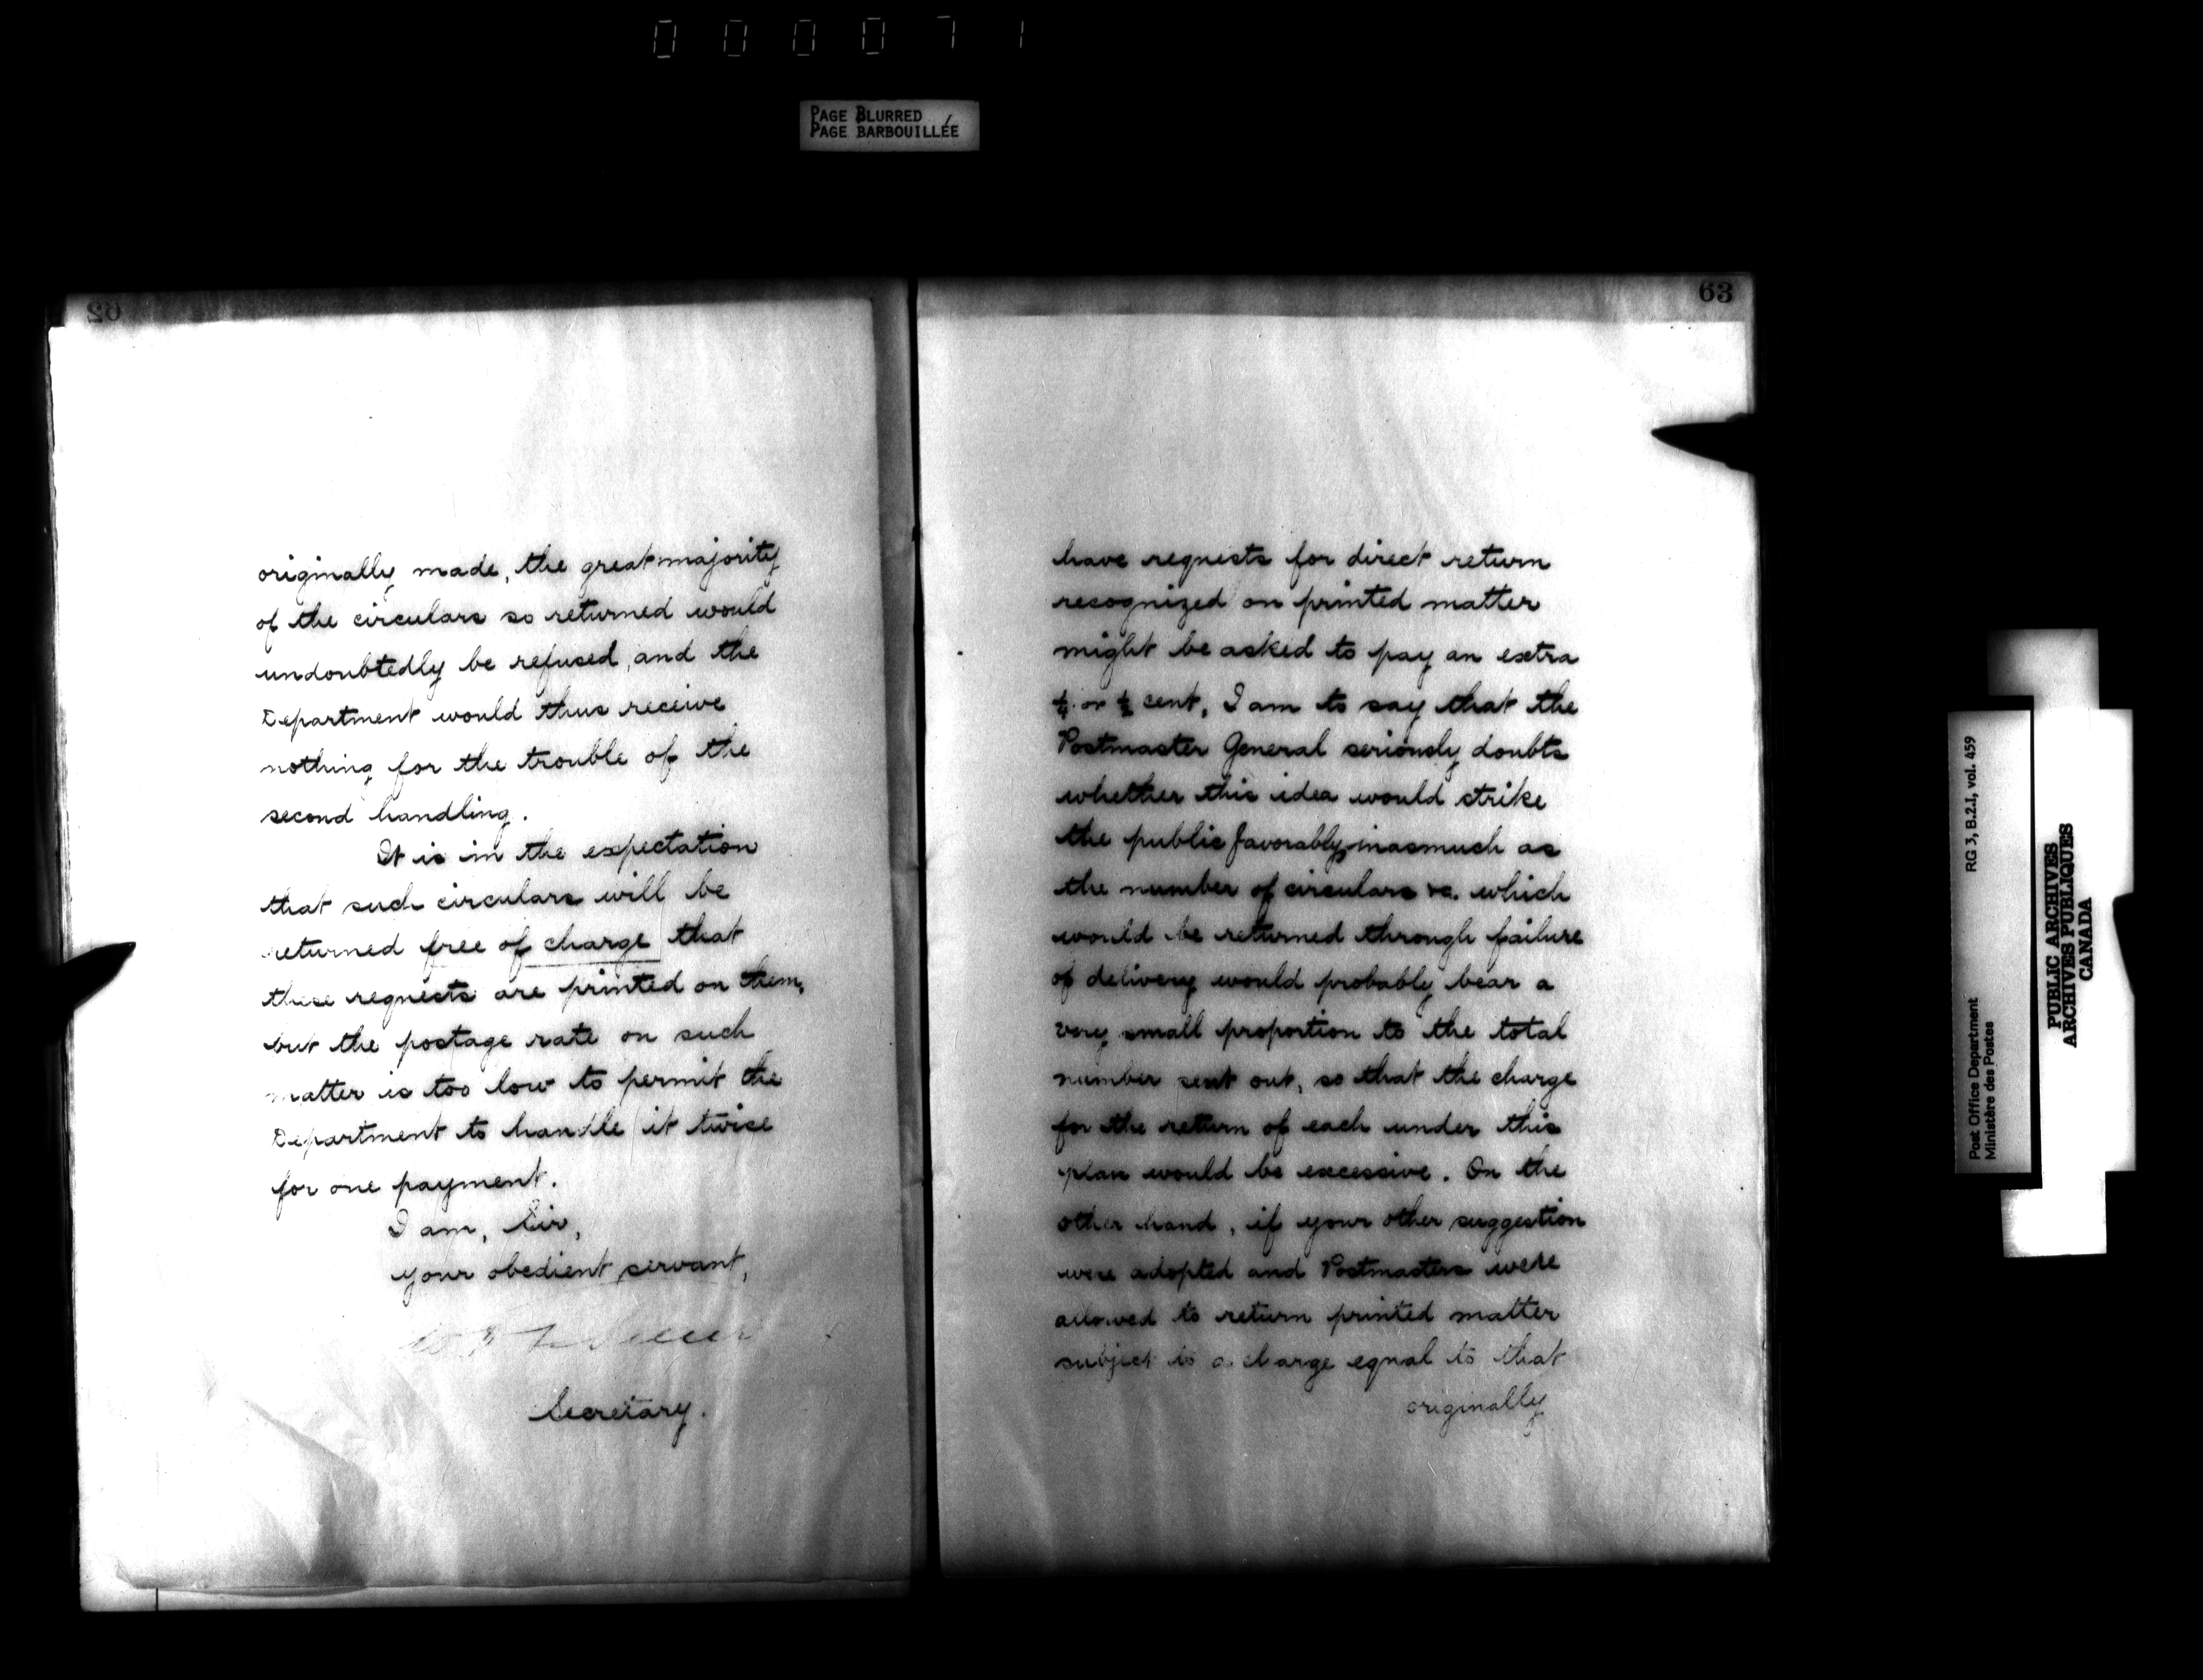 000071
PAGE BLURRED
PAGE BARBOUILLÉE
62
originally made, the great majority
of the circulars so returned would
undoubtedly be refused, and the
Department would thus receive
nothing for the trouble of the
second handling.
It is in the expectation
that such circulars will be
returned free of charge that
these requests are printed on them,
but the postage rate on such
matter is too low to permit the
Department to handle it twice
for one payment.
I am, Sir,
your obedient servant,
Secretary.
63
have requests for direct return
recognized on printed matter
might be asked to pay an extra
¼ or ½ cent, I am to say that the
Postmaster General seriously doubts
whether this idea would strike
the public favorably, inasmuch as
the number of circulars &c. which
would be returned through failure
of delivery would probably bear a
very small proportion to the total
number sent out, so that the charge
for the return of each under this
plan would be excessive. On the
other hand, if your other suggestion
were adopted and Postmasters were
allowed to return printed matter
subject to a charge equal to that
originally
Post Office Department
Ministère des Postes
RG 3, B.2.I, vol. 459
PUBLIC ARCHIVES
ARCHIVES PUBLIQUES
CANADA